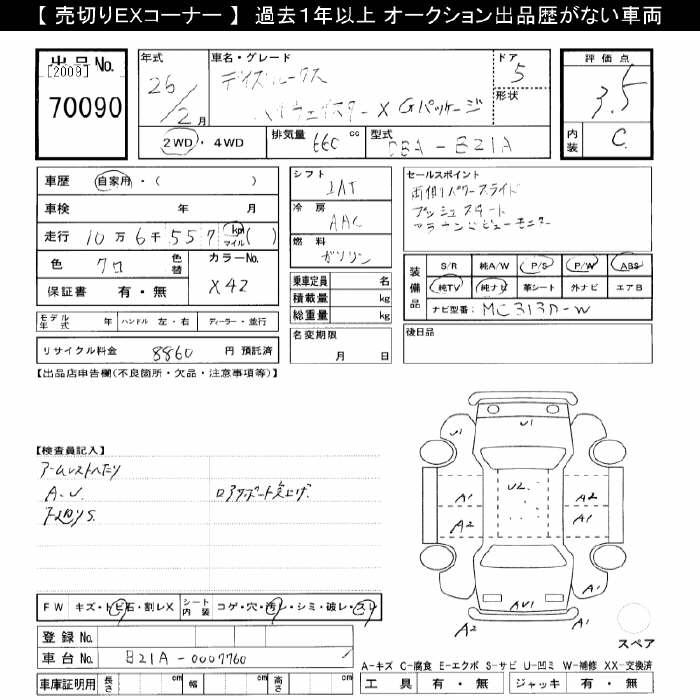 【 売切りEXコーナー 】 過去1年以上 オークション出品歴がない車両
出品 No.
[2009]
70090
年式
26/2月
車名・グレード
デイズルークス
ハイウェイスター X Gパッケージ
ドア
5
形状
評価点
3.5
内装
C
2WD・4WD
排気量 660 cc
型式 DBA-B21A
車歴 自家用・( )
車検 年 月
走行 10万6千557 km マイル ( )
色 クロ
色替
カラーNo.
X42
保証書 有・無
シフト
IAT
冷房
AAC
燃料
ガソリン
乗車定員 名
積載量 kg
総重量 kg
名変期限
月 日
セールスポイント
両側パワースライド
プッシュスタート
アラウンドビューモニター
装備品
S/R 純A/W P/S P/W ABS
純TV 純ナビ 革シート 外ナビ エアB
ナビ型番: MC313D-W
後日品
モデル年式 年 ハンドル 左・右 ディーラー・並行
リサイクル料金 8860 円 預託済
【出品店申告欄(不良箇所・欠品・注意事項等)】
【検査員記入】
アームレストへたり
A.U.
ロアサポート突上げ
FW キズ・トビ石・割レX
シート内装 コゲ・穴・汚レ・シミ・破レ・スレ
登録 No.
車台 No. B21A-0007760
車庫証明用 長さ cm 幅 cm 高さ cm
U1
U1
U2
A1
A2
A2
A1
A1
AU1
A2
A1
スペア
A-キズ C-腐食 E-エクボ S-サビ U-凹ミ W-補修 XX-交換済
工具 有・無 ジャッキ 有・無